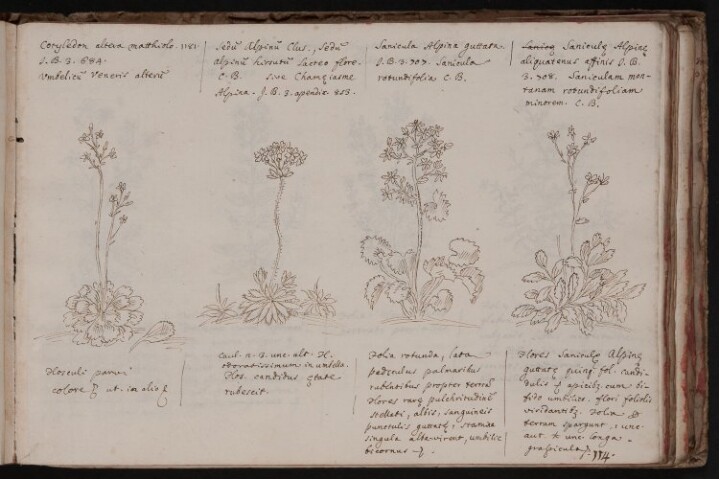 Cotyledon altera matthioli
J. B. 3. 684.
Umbelicũ Veneris alterũ
Sedũ Alpinũ Clus. Sedũ
alpinũ hirsutũ lacteo flore
C. B. sive Chamæiasme
Alpina. J. B. 3. apendix. 853.
Sanicula Alpina guttata
J. B. 3. 707. Sanicula
rotundifolia C. B.
Saniculę Alpinę
aliquatenus affinis J. B.
3. 708. Saniculam mon-
tanam rotundifoliam
minorem. C. B.
flosculi parui
colore ut in alio
caul. 2. 3. unc. alt. fl.
odoratissimum in umbella
flos. candidus ętate
rubescit.
Folia rotunda, lata
pediculus palmaribus
rubentibus propter terrã
flores rarę pulchritudinis
stellati, albis, sanguineis
punctulis guttatę, stamina
singula alte virent, umbilic
bicornus
flores Saniculę Alpinę
guttatę quinq fol. candi-
dulis apicibus cum bi-
fido umbilico. flori foliolis
viridantibꝫ. folia
terram spargunt, 1 unc.
aut longa
114.